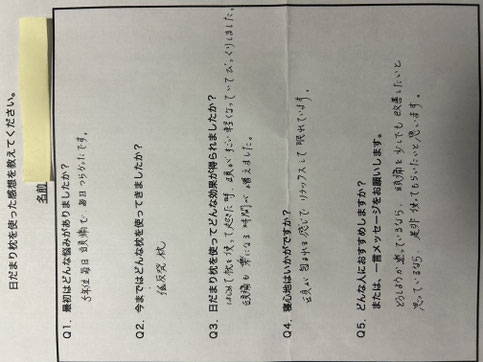 日だまり枕を使った感想を教えてください。
名前
Q1. 最初はどんな悩みがありましたか?
5年位毎日頭痛で毎日つらかったです。
Q2. 今まではどんな枕を使ってきましたか?
低反発枕
Q3. 日だまり枕を使ってどんな効果が得られましたか?
はじめて枕を使って起きた時、頭がすごい軽くなっていてびっくりしました。
頭痛も楽になる時間が増えました。
Q4. 寝心地はいかがですか?
頭が包まれる感じでリラックスして眠れています。
Q5. どんな人におすすめしますか?
または、一言メッセージをお願いします。
どうしようか迷っているなら、頭痛を少しでも改善したいと
思っているなら、是非使ってもらいたいと思います。